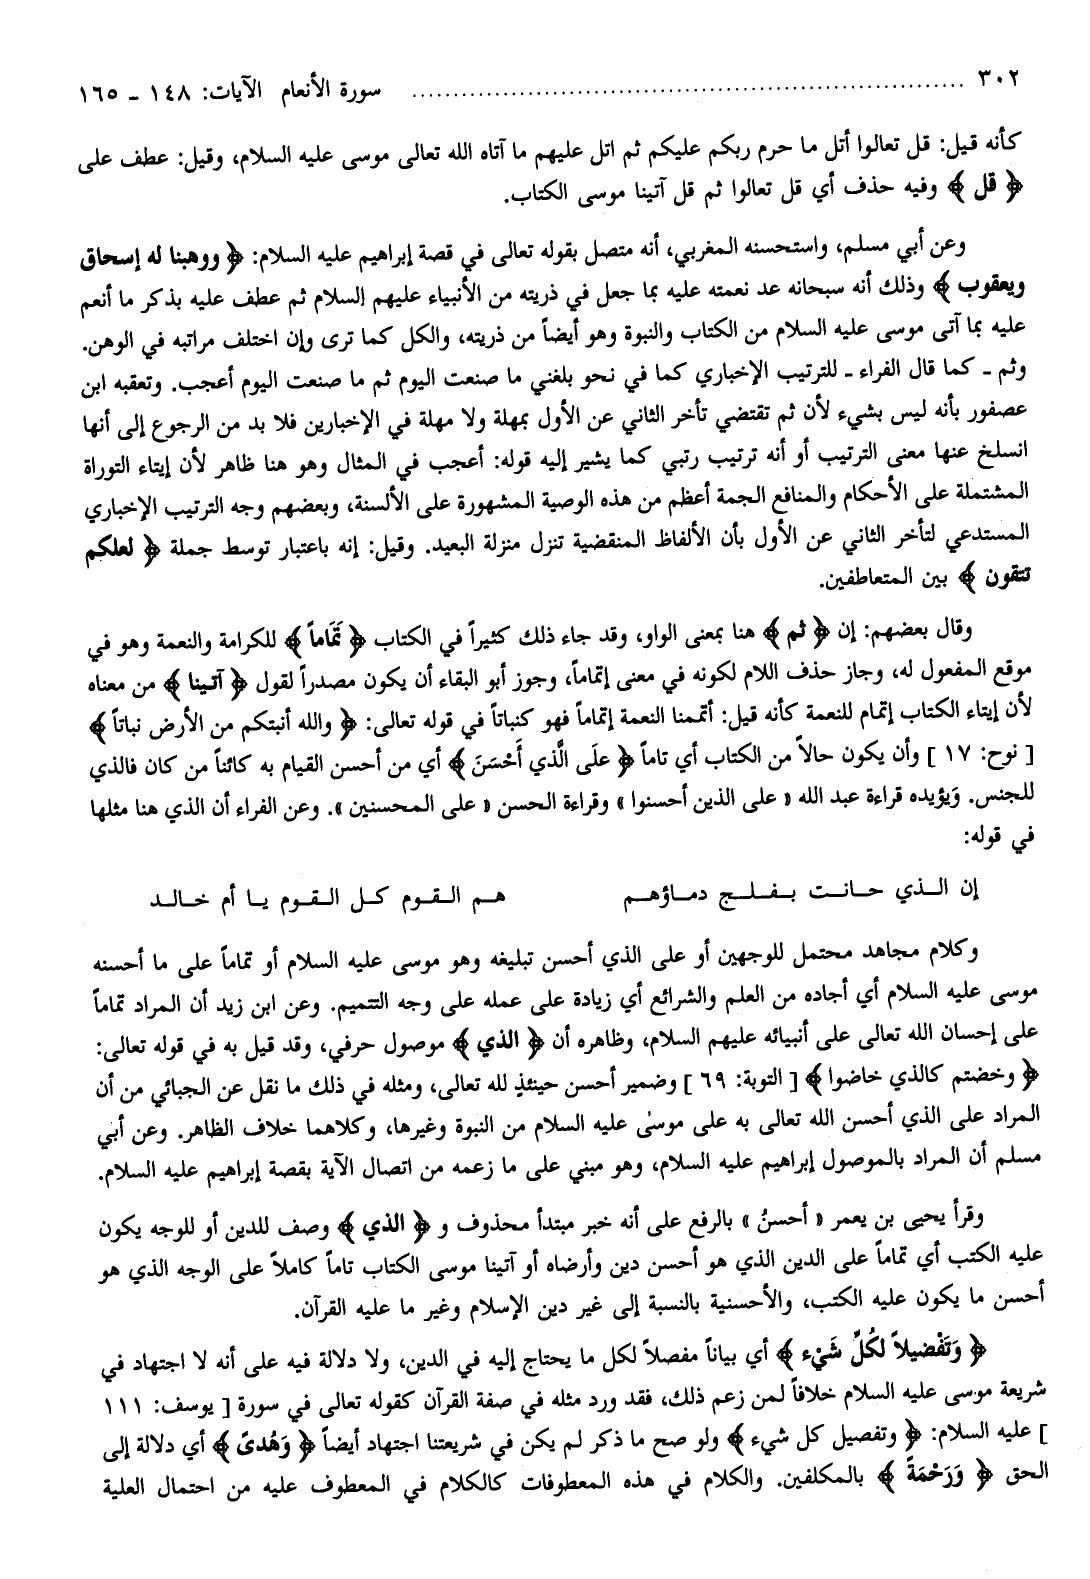 ٣٠٢ ........................................ سورة الأنعام الآيات: ١٤٨ ـ ١٦٥
كأنه قيل: قل تعالوا أتل ما حرم ربكم عليكم ثم اتل عليهم ما آتاه الله تعالى موسى عليه السلام، وقيل: عطف على
﴿ قل ﴾ وفيه حذف أي قل تعالوا ثم قل آتينا موسى الكتاب.
وعن أبي مسلم، واستحسنه المغربي، أنه متصل بقوله تعالى في قصة إبراهيم عليه السلام: ﴿ ووهبنا له إسحاق
ويعقوب ﴾ وذلك أنه سبحانه عد نعمته عليه بما جعل في ذريته من الأنبياء عليهم السلام ثم عطف عليه بذكر ما أنعم
عليه بما آتى موسى عليه السلام من الكتاب والنبوة وهو أيضاً من ذريته، والكل كما ترى وإن اختلف مراتبه في الوهن.
وثم ـ كما قال الفراء ـ للترتيب الإخباري كما في نحو بلغني ما صنعت اليوم ثم ما صنعت اليوم أعجب. وتعقبه ابن
عصفور بأنه ليس بشيء لأن ثم تقتضي تأخر الثاني عن الأول بمهلة ولا مهلة في الإخبارين فلا بد من الرجوع إلى أنها
انسلخ عنها معنى الترتيب أو أنه ترتيب رتبي كما يشير إليه قوله: أعجب في المثال وهو هنا ظاهر لأن إيتاء التوراة
المشتملة على الأحكام والمنافع الجمة أعظم من هذه الوصية المشهورة على الألسنة، وبعضهم وجه الترتيب الإخباري
المستدعي لتأخر الثاني عن الأول بأن الألفاظ المنقضية تنزل منزلة البعيد. وقيل: إنه باعتبار توسط جملة ﴿ لعلكم
تتقون ﴾ بين المتعاطفين.
وقال بعضهم: إن ﴿ ثم ﴾ هنا بمعنى الواو، وقد جاء ذلك كثيراً في الكتاب ﴿ تَمَاماً ﴾ للكرامة والنعمة وهو في
موقع المفعول له، وجاز حذف اللام لكونه في معنى إتماماً، وجوز أبو البقاء أن يكون مصدراً لقول ﴿ آتينا ﴾ من معناه
لأن إيتاء الكتاب إتمام للنعمة كأنه قيل: أتممنا النعمة إتماماً فهو كنباتاً في قوله تعالى: ﴿ والله أنبتكم من الأرض نباتاً ﴾
[ نوح: ١٧ ] وأن يكون حالاً من الكتاب أي تاماً ﴿ عَلَى الَّذي أَحْسَنَ ﴾ أي من أحسن القيام به كائناً من كان فالذي
للجنس. وَيؤيده قراءة عبد الله « على الذين أحسنوا » وقراءة الحسن « على المحسنين ». وعن الفراء أن الذي هنا مثلها
في قوله:
إن الـذي حـانـت بـفـلـج دمـاؤهـم هـم القـوم كـل القـوم يـا أم خـالـد
وكلام مجاهد محتمل للوجهين أو على الذي أحسن تبليغه وهو موسى عليه السلام أو تماماً على ما أحسنه
موسى عليه السلام أي أجاده من العلم والشرائع أي زيادة على عمله على وجه التتميم. وعن ابن زيد أن المراد تماماً
على إحسان الله تعالى على أنبيائه عليهم السلام، وظاهره أن ﴿ الذي ﴾ موصول حرفي، وقد قيل به في قوله تعالى:
﴿ وخضتم كالذي خاضوا ﴾ [ التوبة: ٦٩ ] وضمير أحسن حينئذٍ لله تعالى، ومثله في ذلك ما نقل عن الجبائي من أن
المراد على الذي أحسن الله تعالى به على موسىٰ عليه السلام من النبوة وغيرها، وكلاهما خلاف الظاهر. وعن أبي
مسلم أن المراد بالموصول إبراهيم عليه السلام، وهو مبني على ما زعمه من اتصال الآية بقصة إبراهيم عليه السلام.
وقرأ يحيى بن يعمر « أحسنُ » بالرفع على أنه خبر مبتدأ محذوف و ﴿ الذي ﴾ وصف للدين أو للوجه يكون
عليه الكتب أي تماماً على الدين الذي هو أحسن دين وأرضاه أو آتينا موسى الكتاب تاماً كاملاً على الوجه الذي هو
أحسن ما يكون عليه الكتب، والأحسنية بالنسبة إلى غير دين الإسلام وغير ما عليه القرآن.
﴿ وَتَفْصيلاً لكُلِّ شَيْء ﴾ أي بياناً مفصلاً لكل ما يحتاج إليه في الدين، ولا دلالة فيه على أنه لا اجتهاد في
شريعة موسى عليه السلام خلافاً لمن زعم ذلك، فقد ورد مثله في صفة القرآن كقوله تعالى في سورة [ يوسف: ١١١
] عليه السلام: ﴿ وتفصيل كل شيء ﴾ ولو صح ما ذكر لم يكن في شريعتنا اجتهاد أيضاً ﴿ وَهُدىً ﴾ أي دلالة إلى
الحق ﴿ وَرَحْمَةً ﴾ بالمكلفين. والكلام في هذه المعطوفات كالكلام في المعطوف عليه من احتمال العلية